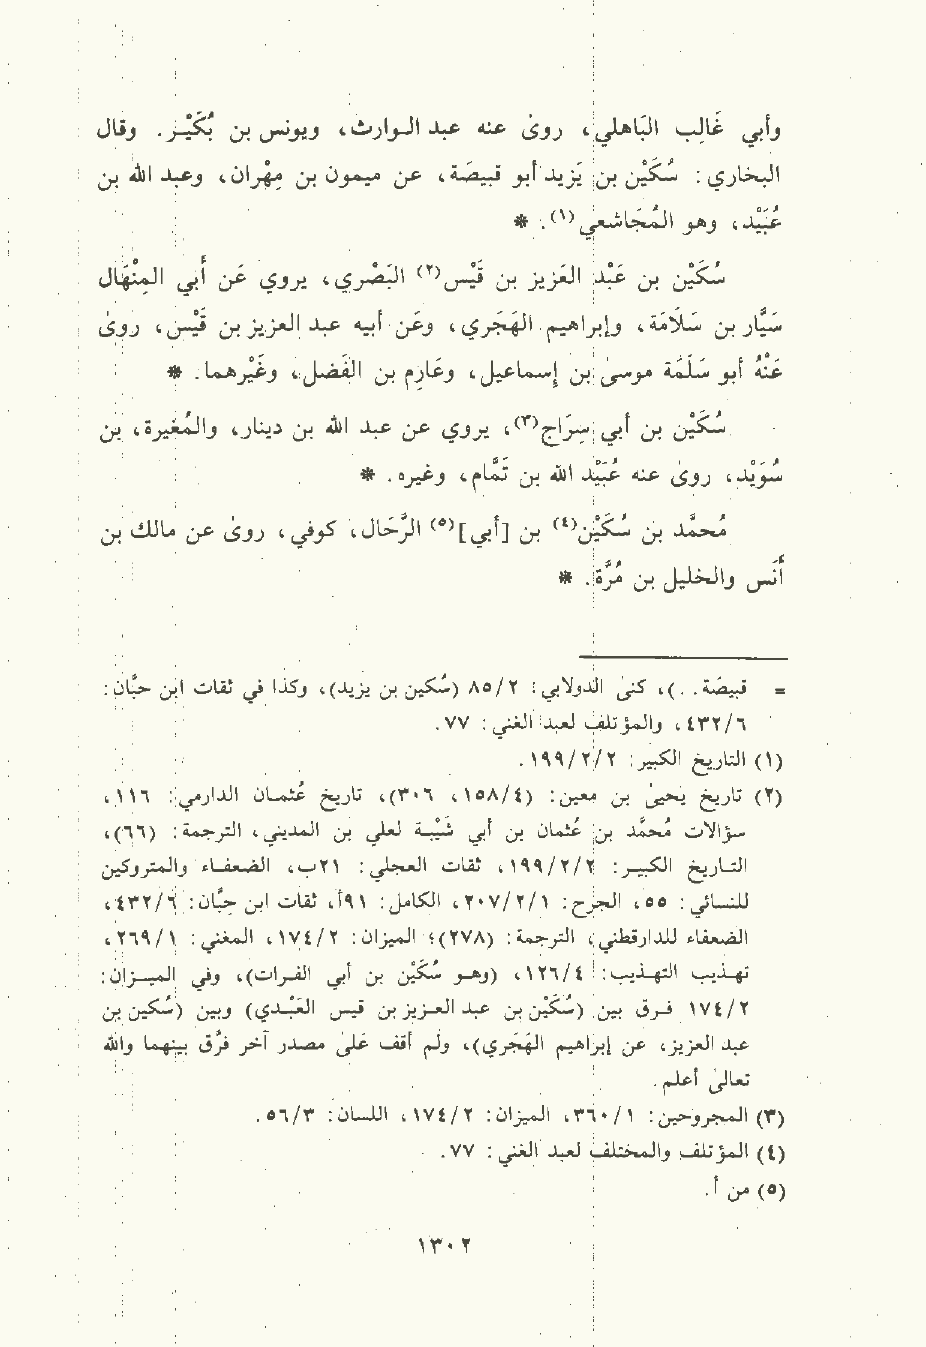 وأبي غَالِب البَاهلي، روىٰ عنه عبد الـوارث، ويونس بن بُكَيْـر. وقال
البخاري: سُكَيْن بن يَزيد أبو قبيصَة، عن ميمون بن مِهْران، وعبد الله بن
عُبَيْد، وهو المُجَاشعي(١). *
سُكَيْن بن عَبْد العَزيز بن قَيْس(٢) البَصْري، يروي عَن أبي المِنْهَال
سَيَّار بن سَلَامَة، وإبراهيم الهَجَري، وعَن أبيه عبد العزيز بن قَيْس، روىٰ
عَنْهُ أبو سَلَمَة موسىٰ بن إسماعيل، وعَارِم بن الفَضل، وغَيْرهما. *
سُكَيْن بن أبي سِرَاج(٣)، يروي عن عبد الله بن دينار، والمُغيرة، بن
سُوَيْد، روىٰ عنه عُبَيْد الله بن تَمَّام، وغيره. *
مُحمَّد بن سُكَيْن(٤) بن [أبي](٥) الرَّحَال، كوفي، روىٰ عن مالك بن
أَنَس والخليل بن مُرَّة. *
= قبيصَة. .)، كنىٰ الدولابي: ٨٥/٢ (سُكين بن يزيد)، وكذا في ثقات ابن حبَّان:
٤٣٢/٦، والمؤتلف لعبد الغني: ٧٧.
(١) التاريخ الكبير: ١٩٩/٢/٢.
(٢) تاريخ يحيىٰ بن معين: (١٥٨/٤، ٣٠٦)، تاريخ عُثمـان الدارمي: ١١٦،
سؤالات مُحمَّد بن عُثمان بن أبي شَيْبـة لعلي بن المديني، الترجمة: (٦٦)،
التـاريخ الكبيـر: ١٩٩/٢/٢، ثقات العجلي: ٢١ب، الضعفـاء والمتروكين
للنسائي: ٥٥، الجرح: ٢٠٧/٢/١، الكامل: ٩١أ، ثقات ابن حِبَّان: ٤٣٢/٦،
الضعفاء للدارقطني، الترجمة: (٢٧٨)؛ الميزان: ١٧٤/٢، المغني: ٢٦٩/١،
تهـذيب التهـذيب: ١٢٦/٤، (وهـو سُكَيْن بن أبي الفـرات)، وفي الميـزان:
١٧٤/٢ فـرق بين (سُكَيْن بن عبد العـزيز بن قيس العَبْـدي) وبين (سُكين بن
عبد العزيز، عن إبراهيم الهَجَري)، ولم أقف عَلىٰ مصدر آخر فرَّق بينهما والله
تعالىٰ أعلم.
(٣) المجروحين: ٣٦٠/١، الميزان: ١٧٤/٢، اللسان: ٥٦/٣.
(٤) المؤتلف والمختلف لعبد الغني: ٧٧.
(٥) من أ.
١٣٠٢